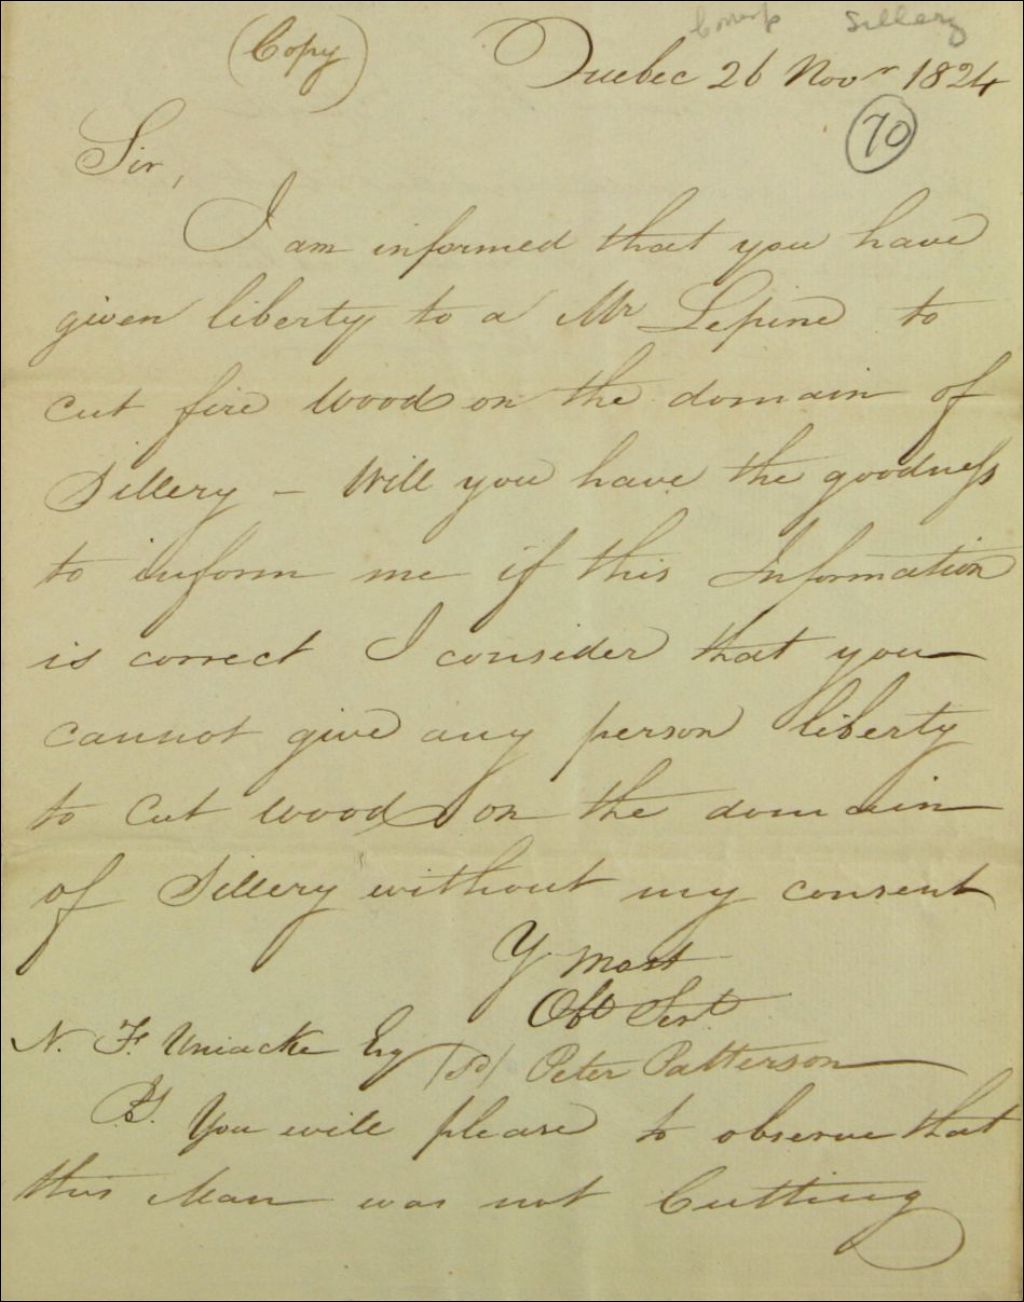 Sillery
(Copy)
Quebec 26 Novr 1824
70
Sir,
I am informed that you have
given liberty to a Mr Lepine to
cut fire wood on the domain of
Sillery - Will you have the goodness
to inform me if this Information
is correct I consider that you
cannot give any person liberty
to cut wood on the domain
of Sillery without my consent
Y most
Obt Sert
N. F. Uniacke Esq (Sd) Peter Patterson
You will please to observe that
this Man was not Cutting